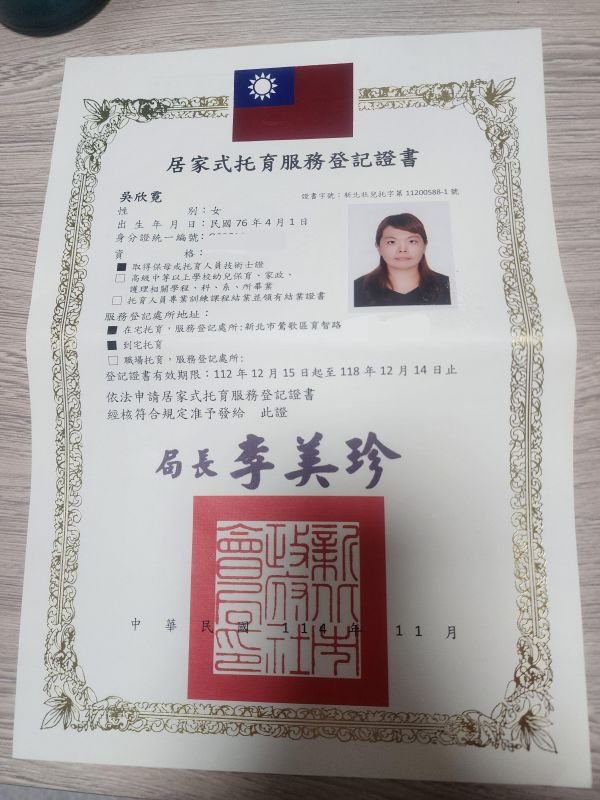 居家式托育服務登記證書
吳欣霓
證書字號：新北社兒托字第 11200588-1 號
性別：女
出生年月日：民國 76 年 4 月 1 日
身分證統一編號：
資格：
■ 取得保母或托育人員技術士證
□ 高級中等以上學校幼兒保育、家政、
護理相關學程、科、系、所畢業
□ 托育人員專業訓練課程結業並領有結業證書
服務登記處所地址：
■ 在宅托育，服務登記處所:新北市鶯歌區育智路
■ 到宅托育
□ 職場托育，服務登記處所:
登記證書有效期限：112 年 12 月 15 日起至 118 年 12 月 14 日止
依法申請居家式托育服務登記證書
經核符合規定准予發給 此證
局長 李美珍
新北市政府社會局印
中華民國 114 年 11 月